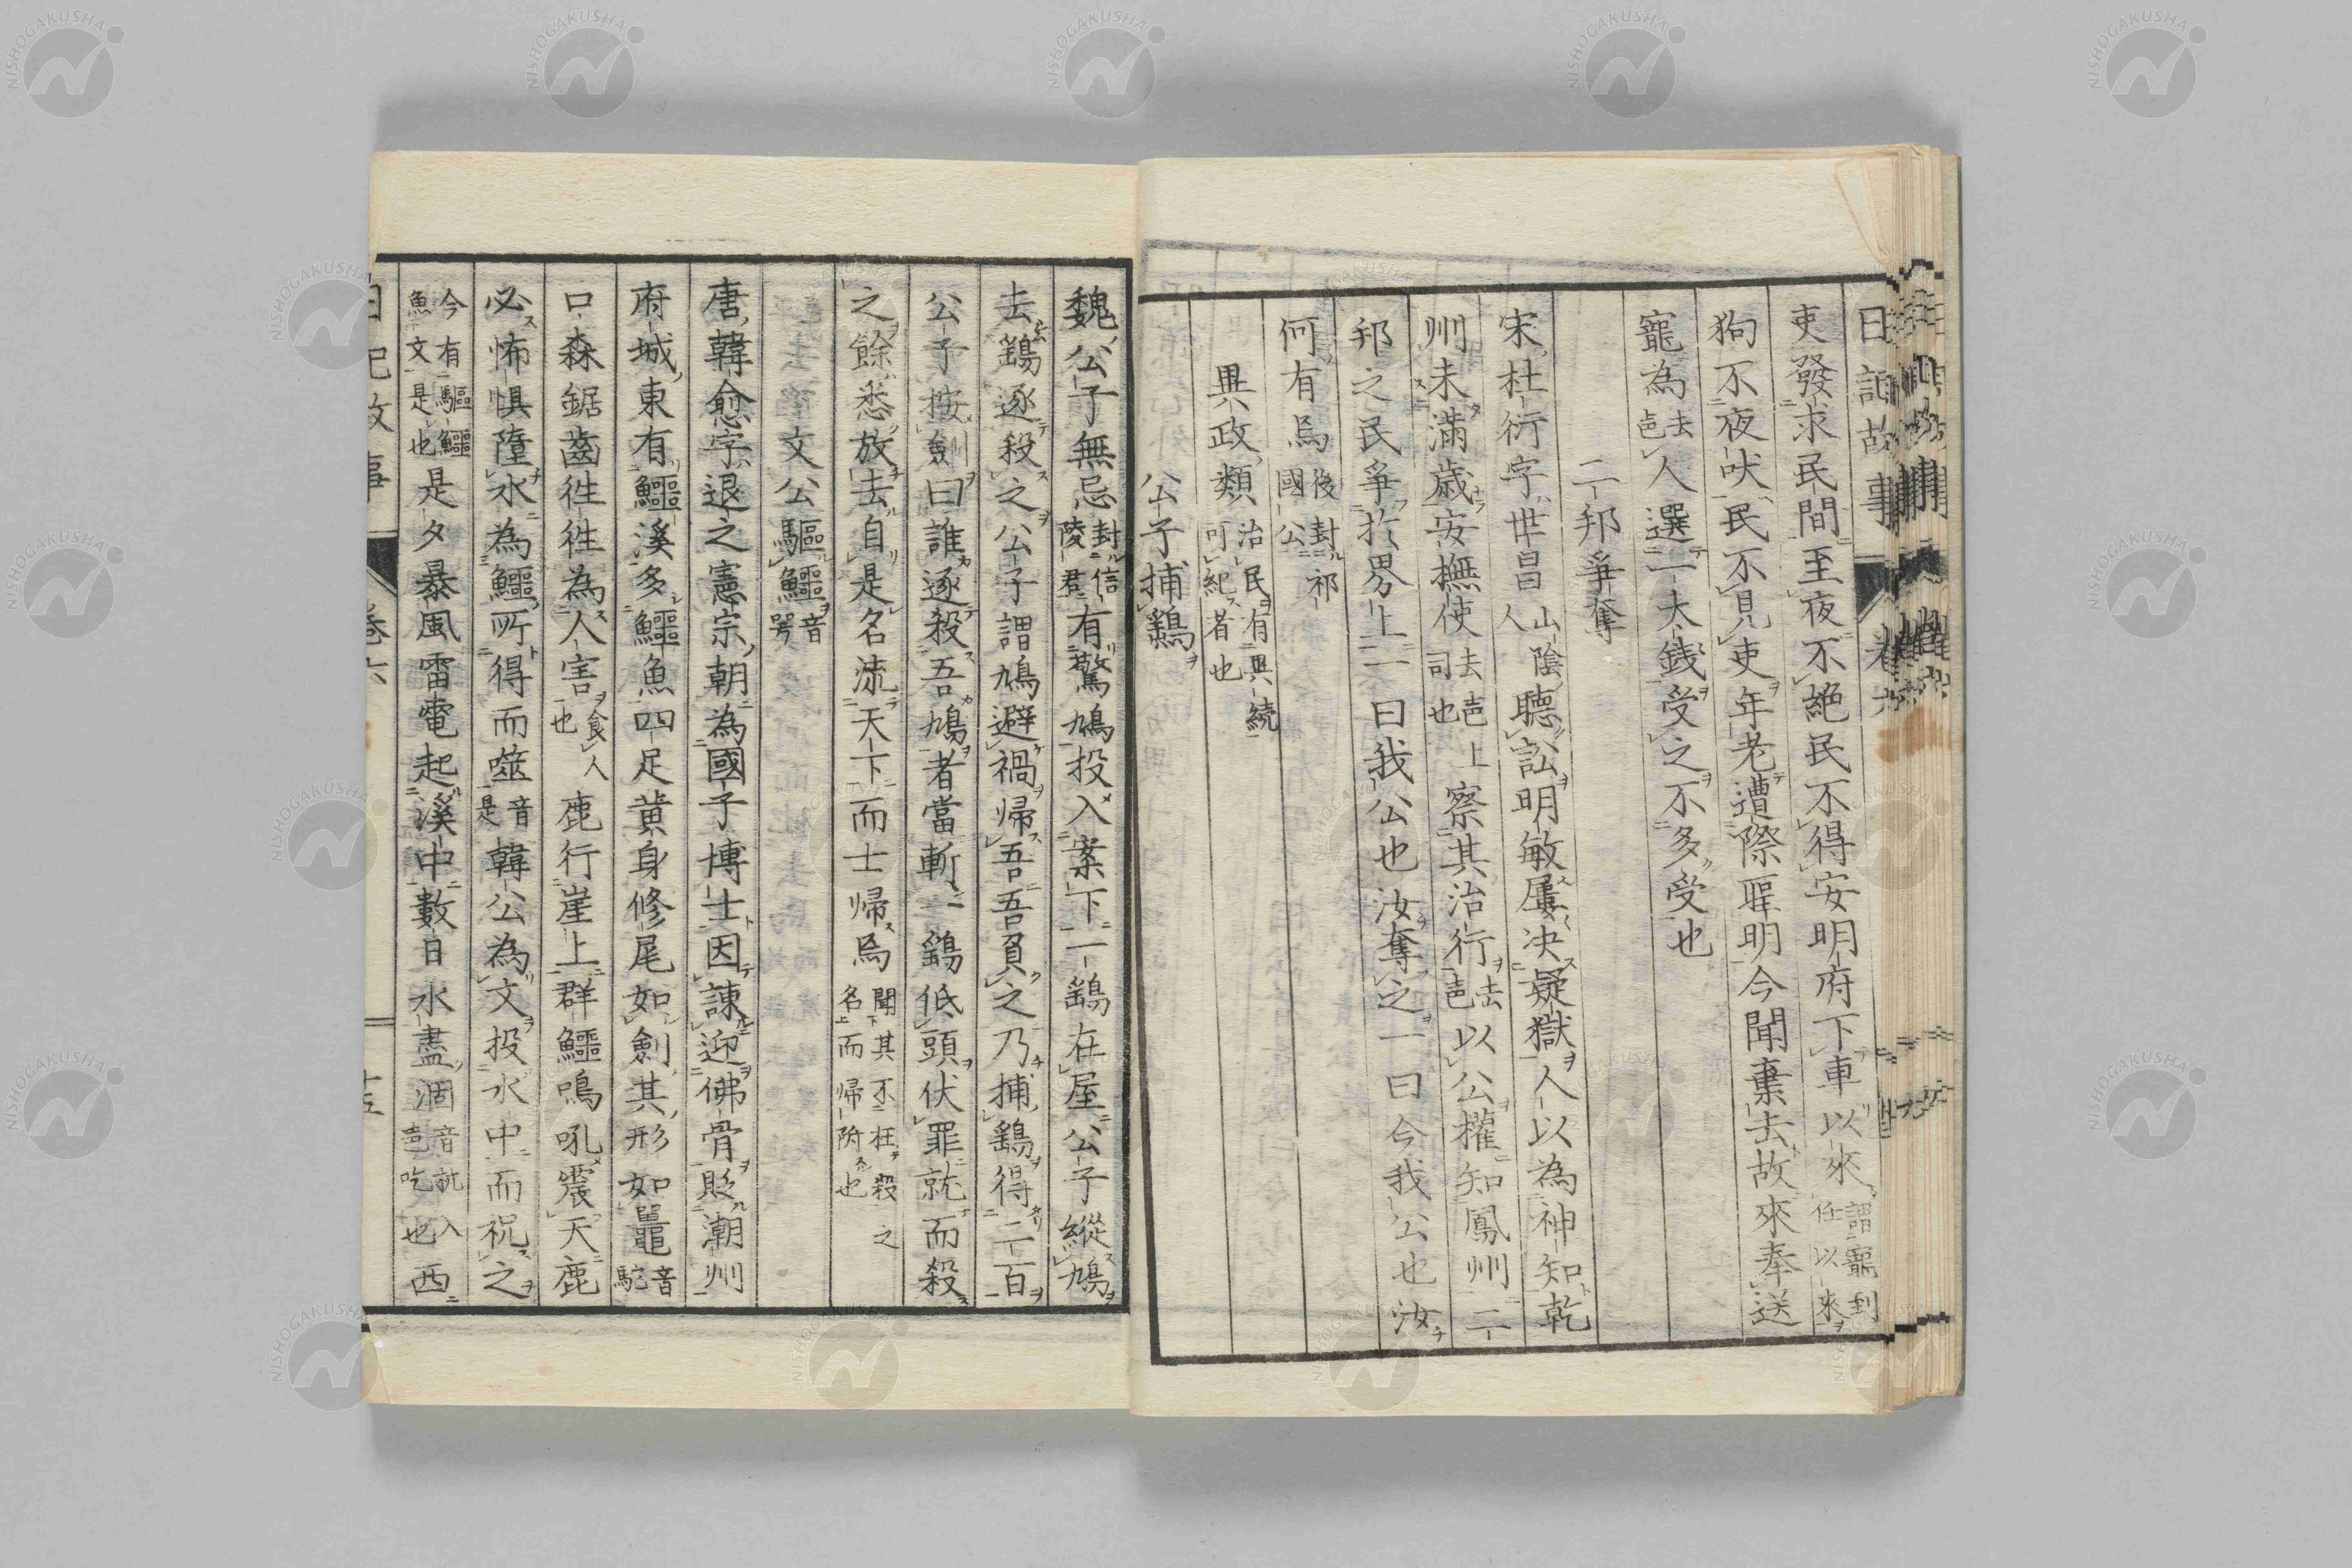 日記故事 卷六
吏發求民間至夜不絶民不得安明府下車以來謂寵到任以來
狗不夜吠民不見吏年老遭際聖明今聞棄去故來奉送
寵為去邑人選一大銭受之不多受也
二邦爭奪
宋杜衍字世昌山陰人聽訟明敏屢决疑獄人以為神知乾
州未滿歳安撫使去邑司也上察其治行去邑以公權知鳳州二
邦之民爭扵界上一曰我公也汝奪之一曰今我公也汝
何有焉後封祁國公
異政類治民有異績可紀者也
公子捕鷂
魏公子無忌封信陵君有驚鳩投入案下一鷂在屋公子縱鳩
去鷂逐殺之公子謂鳩避禍帰吾吾負之乃捕鷂得二百
公子按劍曰誰逐殺吾鳩者當斬一鷂低頭伏罪就而殺
之餘悉放去自是名流天下而士帰焉聞其不枉殺之名而帰附也
文公驅鱷音咢
唐韓愈字退之憲宗朝為國子博士因諫迎佛骨貶潮州
府城東有鱷溪多鱷魚四足黄身修尾如劍其形如鼉音駝
口森鋸齒徃徃為人害食人也鹿行崖上群鱷鳴吼震天鹿
必怖惧墮水為鱷所得而噬音是韓公為文投水中而祝之
今有驅鱷魚文是也是夕暴風雷電起溪中數日水盡涸音㐫入也西
日記故事 卷六 十五